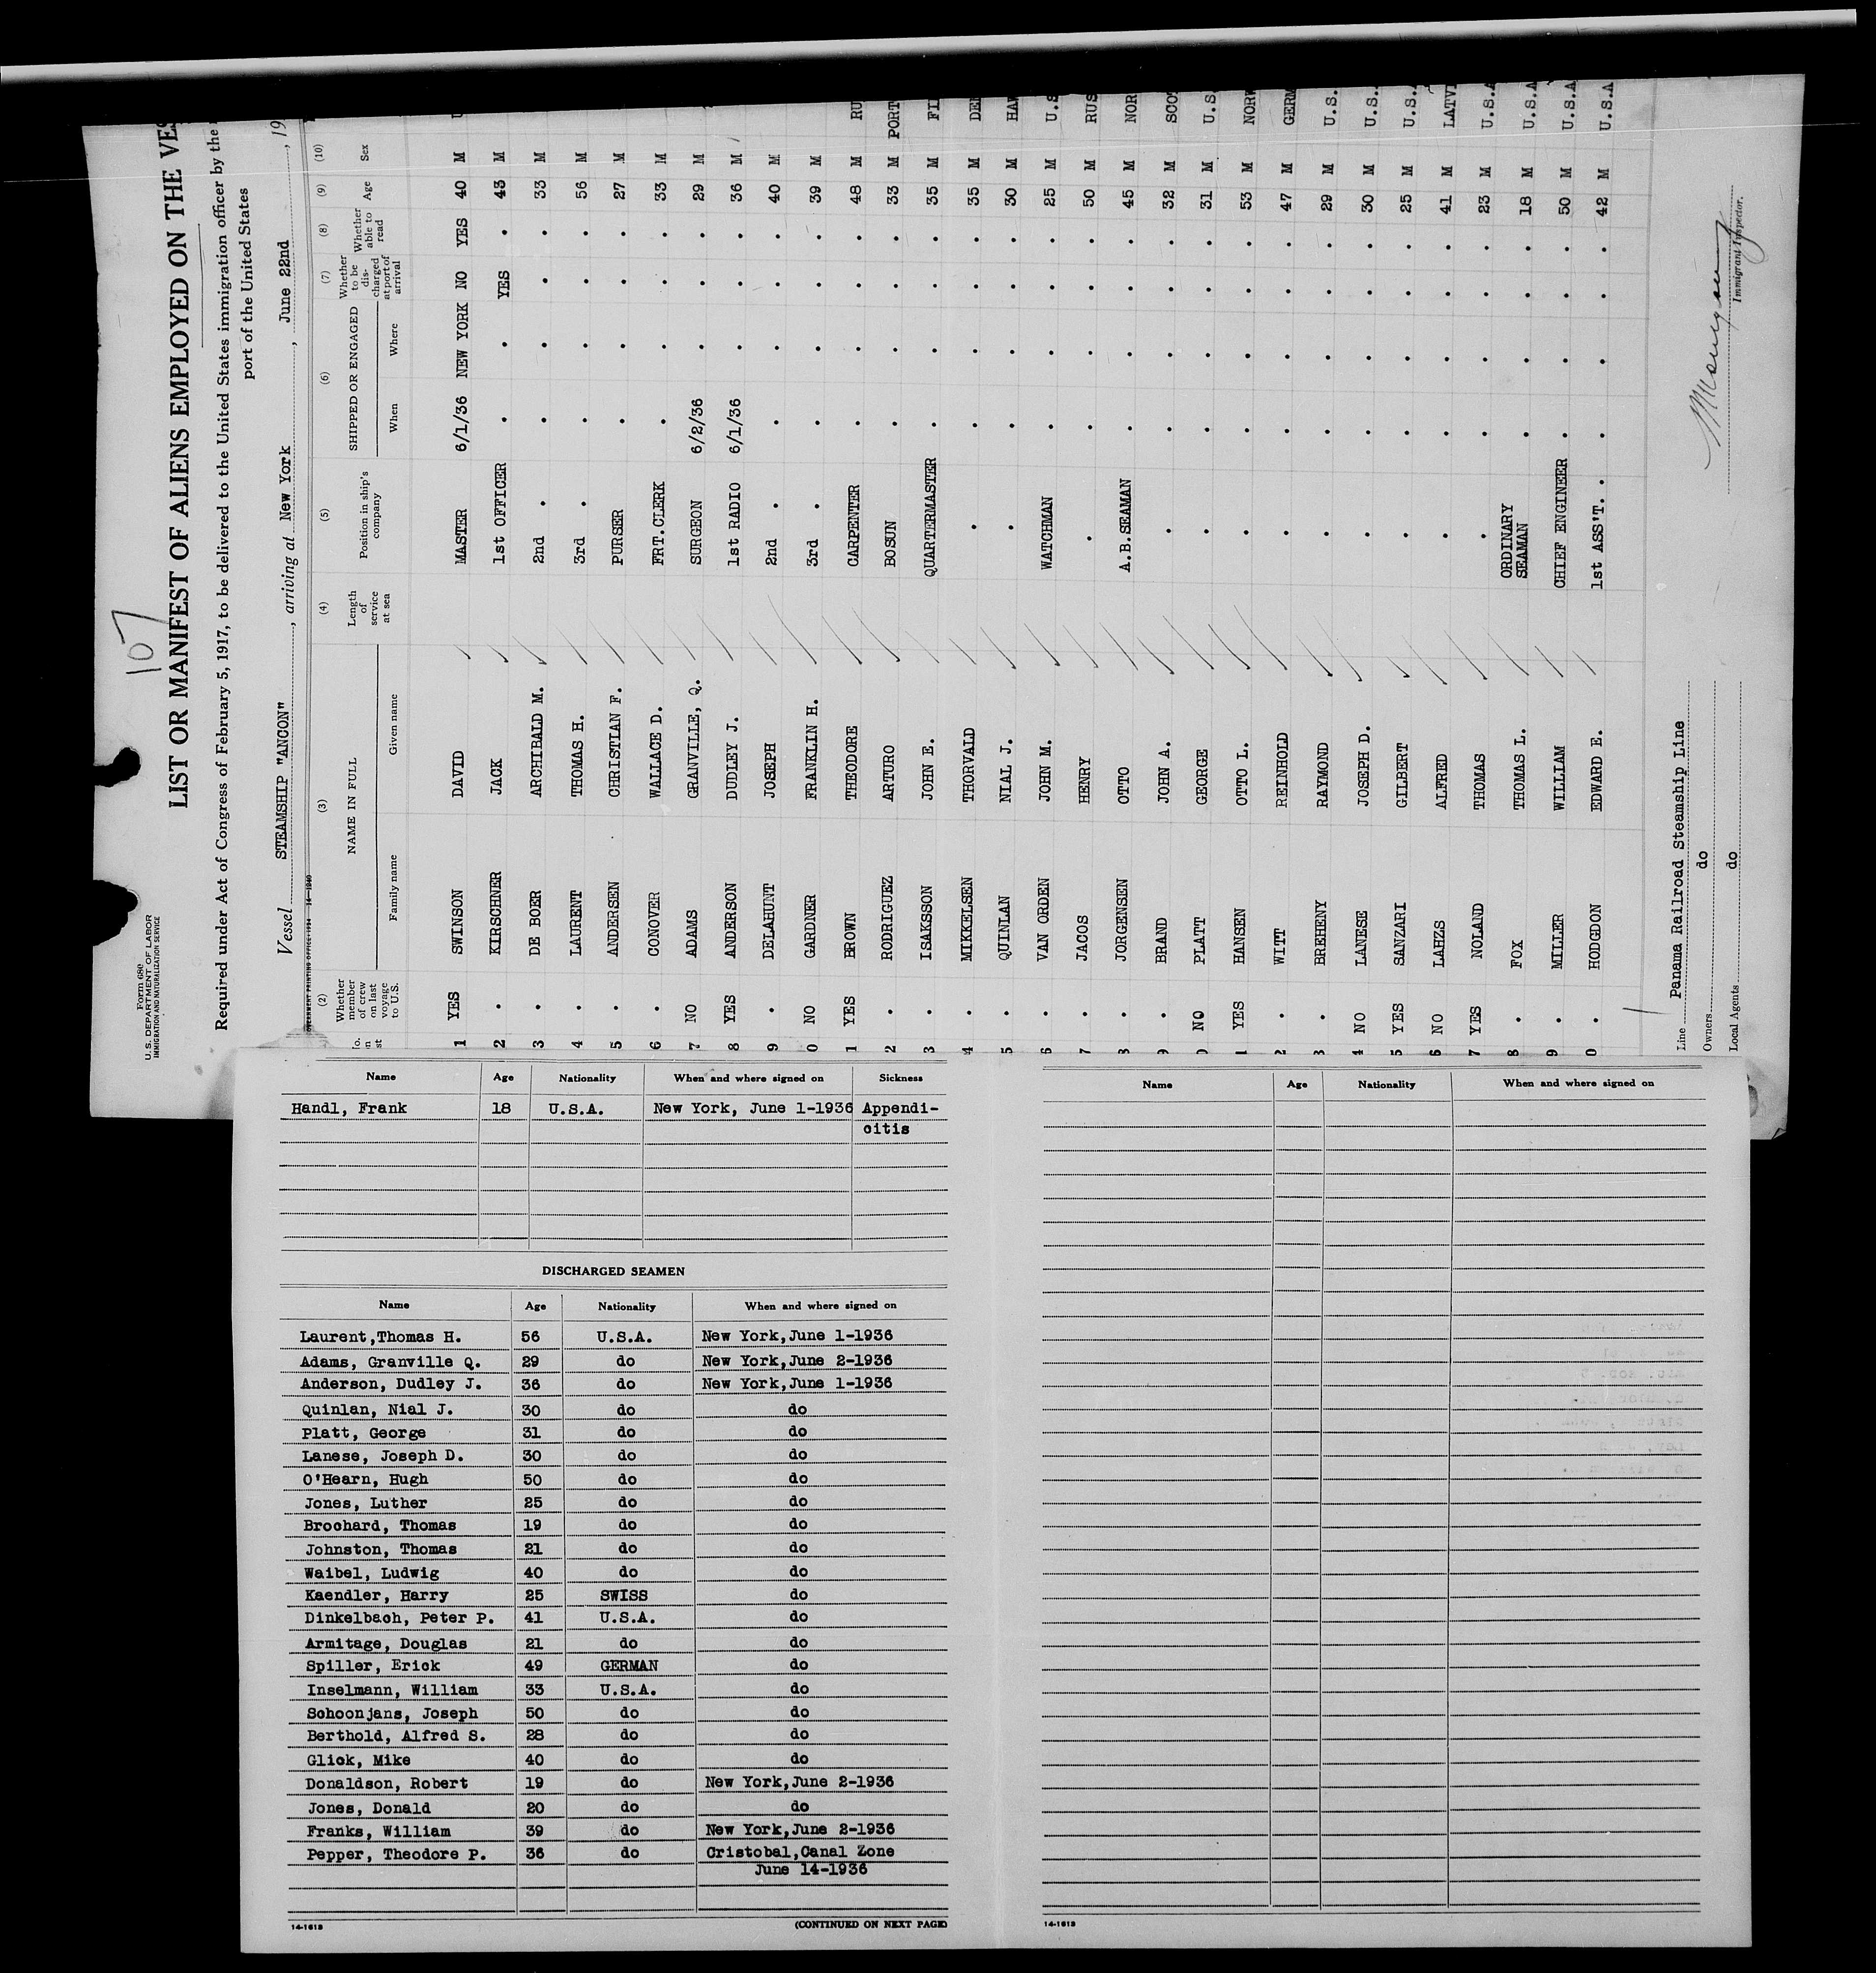 107
Form 680
U. S. DEPARTMENT OF LABOR
IMMIGRATION AND NATURALIZATION SERVICE
LIST OR MANIFEST OF ALIENS EMPLOYED ON THE VES
Required under Act of Congress of February 5, 1917, to be delivered to the United States immigration officer by the
port of the United States
Vessel STEAMSHIP "ANCON", arriving at New York, June 22nd, 19
(2) (3) (4) (5) (6) (7) (8) (9) (10)
Whether member of crew on last voyage to U.S. NAME IN FULL Family name Given name Length of service at sea Position in ship's company SHIPPED OR ENGAGED When Where Whether to be discharged at port of arrival Whether able to read Age Sex
1 YES SWINSON DAVID MASTER 6/1/36 NEW YORK NO YES 40 M U
2 . KIRSCHNER JACK 1st OFFICER . . YES . 43 M
3 . DE BOER ARCHIBALD M. 2nd . . . . . 33 M
4 . LAURENT THOMAS H. 3rd . . . . . 56 M
5 . ANDERSEN CHRISTIAN F. PURSER . . . . 27 M
6 . CONOVER WALLACE D. FRT.CLERK . . . . 33 M
7 NO ADAMS GRANVILLE, Q. SURGEON 6/2/36 . . . 29 M
8 YES ANDERSON DUDLEY J. 1st RADIO 6/1/36 . . . 36 M
9 . DELAHUNT JOSEPH 2nd . . . . . 40 M
0 NO GARDNER FRANKLIN H. 3rd . . . . . 39 M
1 YES BROWN THEODORE CARPENTER . . . . 48 M RU
2 . RODRIGUEZ ARTURO BOSUN . . . . 33 M PORT
3 . ISAKSSON JOHN E. QUARTERMASTER . . . . 35 M FI
4 . MIKKELSEN THORVALD . . . . . 35 M DEN
5 . QUINLAN NIAL J. . . . . . 30 M HAW
6 . VAN ORDEN JOHN M. WATCHMAN . . . . 25 M U.S
7 . JACOS HENRY . . . . . 50 M RUS
8 . JORGENSEN OTTO A.B.SEAMAN . . . . 45 M NOR
9 . BRAND JOHN A. . . . . . 32 M SCOT
0 NO PLATT GEORGE . . . . . 31 M U.S.
1 YES HANSEN OTTO L. . . . . . 53 M NORW
2 . WITT REINHOLD . . . . . 47 M GERM
3 . BREHENY RAYMOND . . . . . 29 M U.S.
4 NO LANESE JOSEPH D. . . . . . 30 M U.S.
5 YES SANZARI GILBERT . . . . . 25 M U.S.
6 NO LAHZS ALFRED . . . . . 41 M LATVI
7 YES NOLAND THOMAS . . . . . 23 M U.S.A
8 . FOX THOMAS L. ORDINARY SEAMAN . . . . 18 M U.S.A
9 . MILLER WILLIAM CHIEF ENGINEER . . . . 50 M U.S.A
0 . HODGDON EDWARD E. 1st ASS'T. . . . . . 42 M U.S.A
Line Panama Railroad Steamship Line
Owners do
Local Agents do
Immigrant Inspector.
Name Age Nationality When and where signed on Sickness
Handl, Frank 18 U.S.A. New York, June 1-1936 Appendi-
citis
DISCHARGED SEAMEN
Name Age Nationality When and where signed on
Laurent,Thomas H. 56 U.S.A. New York,June 1-1936
Adams, Granville Q. 29 do New York,June 2-1936
Anderson, Dudley J. 36 do New York,June 1-1936
Quinlan, Nial J. 30 do do
Platt, George 31 do do
Lanese, Joseph D. 30 do do
O'Hearn, Hugh 50 do do
Jones, Luther 25 do do
Brochard, Thomas 19 do do
Johnston, Thomas 21 do do
Waibel, Ludwig 40 do do
Kaendler, Harry 25 SWISS do
Dinkelbach, Peter P. 41 U.S.A. do
Armitage, Douglas 21 do do
Spiller, Erick 49 GERMAN do
Inselmann, William 33 U.S.A. do
Schoonjans, Joseph 50 do do
Berthold, Alfred S. 28 do do
Glick, Mike 40 do do
Donaldson, Robert 19 do New York,June 2-1936
Jones, Donald 20 do do
Franks, William 39 do New York,June 2-1936
Pepper, Theodore P. 36 do Cristobal,Canal Zone
June 14-1936
14-1613 (CONTINUED ON NEXT PAGE)
Name Age Nationality When and where signed on
14-1613